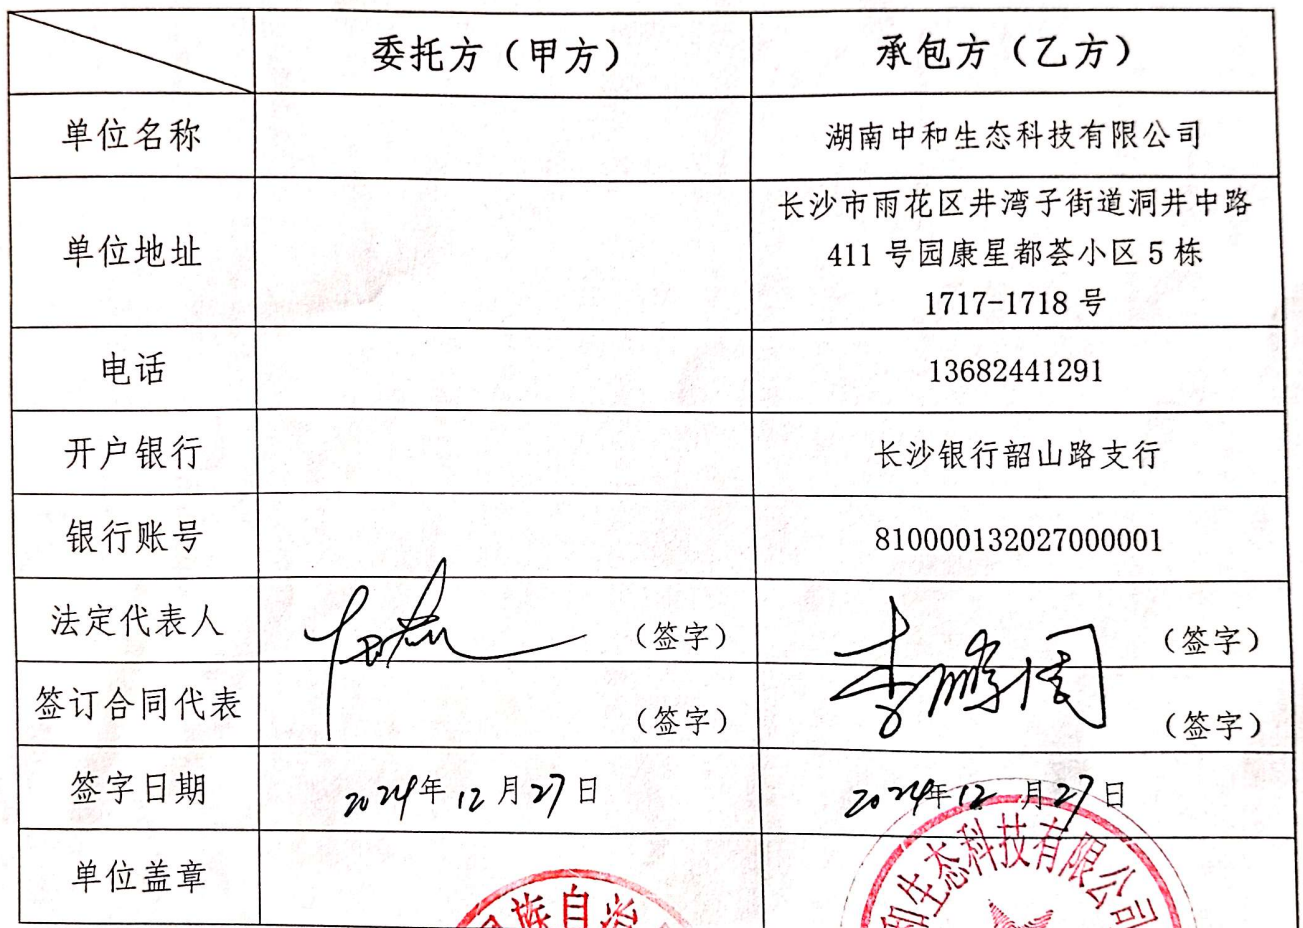 委托方（甲方） 承包方（乙方）
单位名称 湖南中和生态科技有限公司
单位地址 长沙市雨花区井湾子街道洞井中路
411 号园康星都荟小区 5 栋
1717-1718 号
电话 13682441291
开户银行 长沙银行韶山路支行
银行账号 810000132027000001
法定代表人 （签字） （签字）
签订合同代表 （签字） 李鹏 （签字）
签字日期 2024年12月27日 2024年12月27日
单位盖章
族自治
和生态科技有限公司